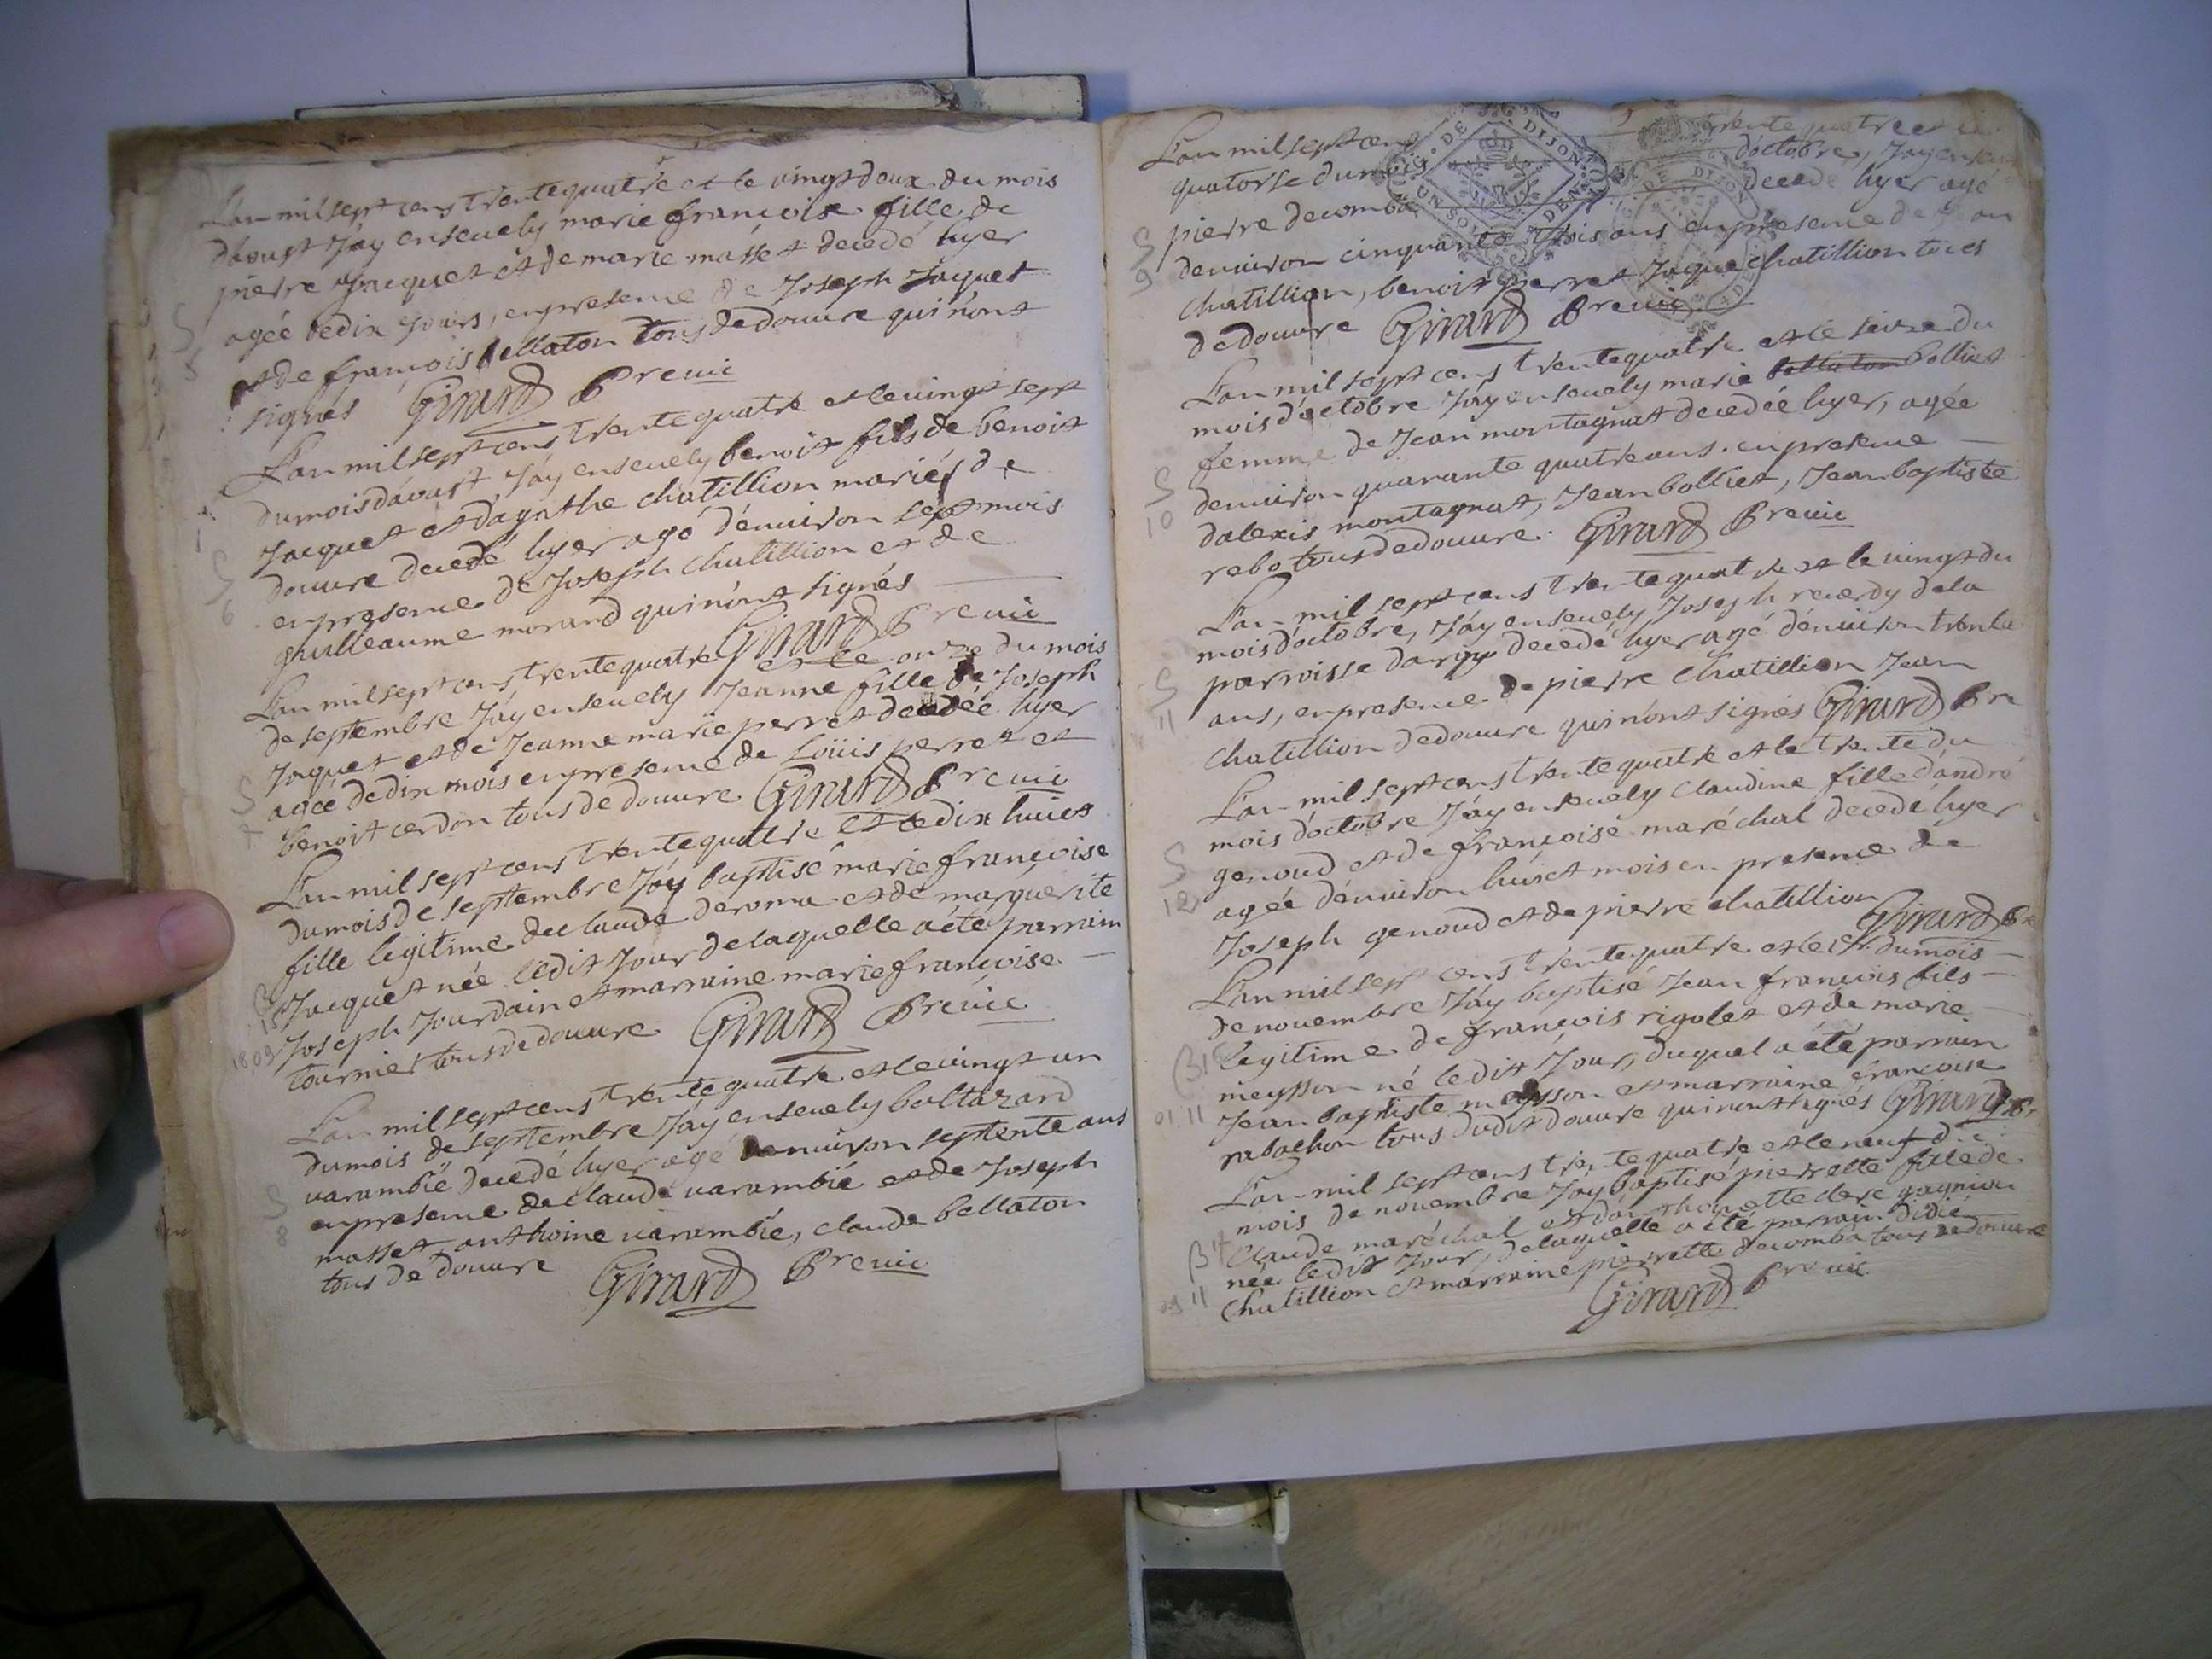 L'an mil sept cens trente quatre et le vingt deux du mois
d'avust j'ay ensevely marie françoise fille de
pierre jacquet et de marie masset decedé hyer
agée de dix jours, en presence de Joseph Jaquet
S
5
et de françois bellaton tous de douvre qui n'ont
signés Girard Pre vic
L'an mil sept cens trente quatre et le vingt sept
du mois d'avust j'ay ensevely benoit fils de benoit
Jacquet et d'agathe chatillion mariés de
douvre decedé hyer agé d'environ sept mois
S
6
en presence de Joseph chatillion et de
guilleaume morand qui n'ont signés
Girard Pre vic
L'an mil sept cens trente quatre et le onze du mois
de septembre j'ay ensevely Jeanne fille de Joseph
Jaquet et de Jeanne marie perret decedée hyer
S
7
agée de dix mois en presence de Loüis perret et
benoit cerdon tous de douvre Girard Pre vic
L'an mil sept cens trente quatre et le dix huict
du mois de septembre j'ay baptisé marie françoise
fille legitime de claude deroma et de marguerite
B
15
Jacquet née ledit jour de laquelle a été parrain
18,09
Joseph Jourdain et marraine marie françoise
tournier tous de douvre Girard Pre vic
L'an mil sept cens trente quatre et le vingt un
du mois de septembre j'ay ensevely baltazard
varambié decedé hyer agé d'environ septente ans
S
8
en presence de claude varambié et de Joseph
masset anthoine varambié, claude bellaton
tous de douvre Girard Pre vic
L'an mil sept cens trente quatre et le
quatorse du mois d'octobre, j'ay ensevely
pierre decomba decedé hyer agé
S
9
d'environ cinquante trois ans en presence de Jean
chatillion, benoit perret Jaque chatillion tous
de douvre Girard Pre vic
G. DE DIJON
L'an mil sept cens trente quatre et le seize du
mois d'octobre j'ay ensevely marie bellaton bolliet
femme de Jean montagnat decedée hyer, agée
S
10
d'environ quarante quatre ans. en presence
d'alexis montagnat, Jean bolliet, Jean baptiste
rebo tous de douvre. Girard Pre vic
L'an mil sept cens trente quatre et le vingt du
mois d'octobre, j'ay ensevely Joseph reverdy de la
parroisse d'arigy decedé hyer agé d'environ trente
S
11
ans, en presence de pierre chatillion Jean
chatillion de douvre qui n'ont signés Girard Pre
L'an mil sept cens trente quatre et le trente du
mois d'octobre j'ay ensevely claudine fille d'andré
genoud et de françoise maréchal decedé hyer
S
12
agée d'environ huict mois en presence de
Joseph genoud et de pierre chatillion
Girard Pre
L'an mil sept cens trente quatre et le 1er du mois
de novembre j'ay baptisé Jean françois fils
legitime de françois rigolet et de marie
B16
meysson né ledit jour, duquel a été parrain
01.11
Jean baptiste meysson et marraine françoise
rabachon tous dudit douvre qui n'ont signés Girard Pre
L'an mil sept cens trente quatre et le neuf du
mois de novembre j'ay baptisé pierrette fille de
claude maréchal et d'anthoinette clere gagnion
B17
née ledit jour, de laquelle a été parrain didié
09 11
chatillion et marraine pierrette decomba tous de douvre
Girard Pre vic